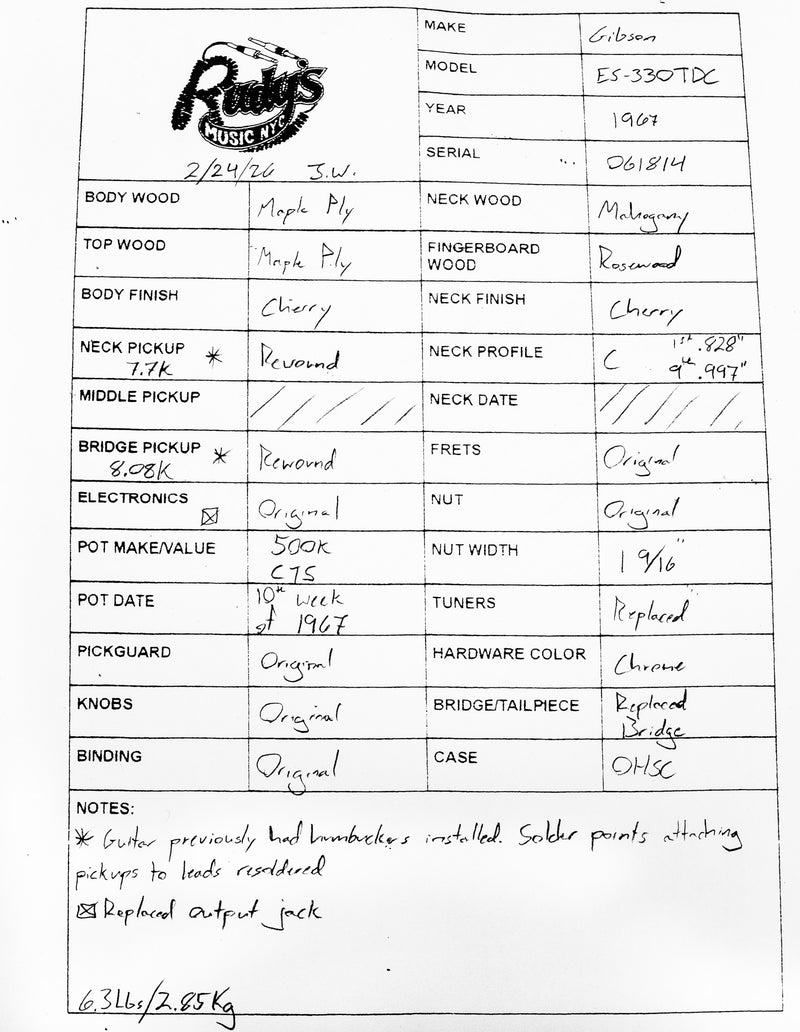 Rudy's
MUSIC NYC
2/24/26 J.W.
MAKE Gibson
MODEL ES-330TDC
YEAR 1967
SERIAL 061814
BODY WOOD Maple Ply NECK WOOD Mahogany
TOP WOOD Maple Ply FINGERBOARD WOOD Rosewood
BODY FINISH Cherry NECK FINISH Cherry
NECK PICKUP * 7.7K Rewound NECK PROFILE C 1st .828" 9th .997"
MIDDLE PICKUP NECK DATE
BRIDGE PICKUP * 8.08K Rewound FRETS Original
ELECTRONICS ☒ Original NUT Original
POT MAKE/VALUE 500K CTS NUT WIDTH 1 9/16"
POT DATE 10th week of 1967 TUNERS Replaced
PICKGUARD Original HARDWARE COLOR Chrome
KNOBS Original BRIDGE/TAILPIECE Replaced Bridge
BINDING Original CASE OHSC
NOTES:
* Guitar previously had humbuckers installed. Solder points attaching
pickups to leads resoldered
☒ Replaced output jack
6.3Lbs/2.85Kg